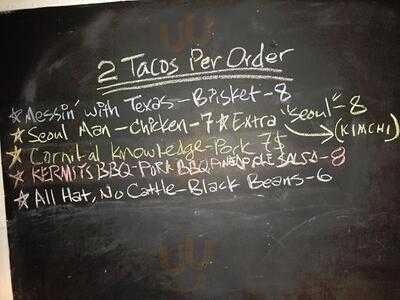 2 Tacos Per Order
☆ Messin' with Texas-Brisket-8
☆ Seoul Man-Chicken-7 ☆ Extra "Seoul"-8
(KIMCHI)
☆ Cornital Knowledge-Pork 7$
☆ KERMITS BBQ-PORK BBQ PINEAPPLE SALSA-8
☆ All Hat, No Cattle-Black Beans-6